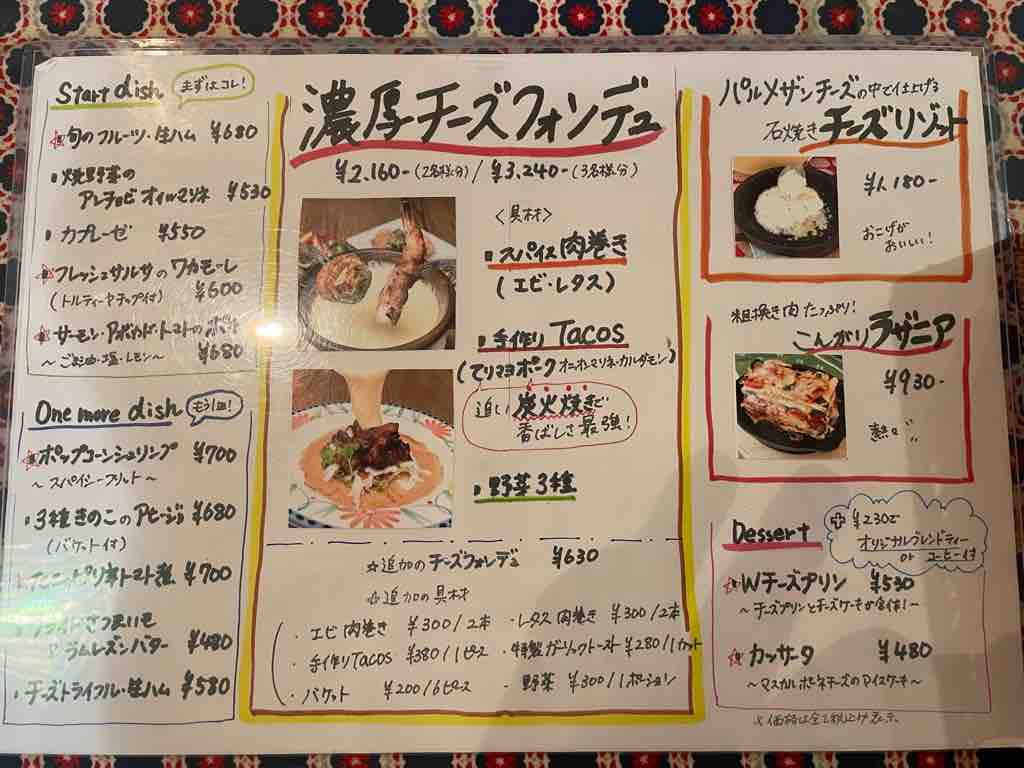 Start dish
まずはコレ!
旬のフルーツ・生ハム ¥680
・焼野菜の
アンチョビオイルマリネ ¥530
・カプレーゼ ¥550
フレッシュサルサのワカモーレ
(トルティーヤチップ付) ¥600
サーモン・アボカド・トマトのポキ
〜ごま油・塩・レモン〜 ¥680
One more dish
もう1皿!
ポップコーンシュリンプ ¥700
〜スパイシーフリット〜
・3種きのこのアヒージョ ¥680
(バケット付)
ピリ辛トマト煮 ¥700
フライドさつまいも
ラムレーズンバター ¥480
・チーズトライフル・生ハム ¥580
濃厚チーズフォンデュ
¥2,160-(2名様分)/¥3,240-(3名様分)
〈具材〉
・スパイス肉巻き
(エビ・レタス)
・手作りTacos
(てりマヨポーク オニオンマリネ・カルダモン)
追い炭火焼きで
香ばしさ最強!
・野菜3種
☆追加のチーズフォンデュ ¥630
☆追加の具材
・エビ肉巻き ¥300/2本
・レタス肉巻き ¥300/2本
・手作りTacos ¥380/1ピース
・特製ガーリックトースト ¥280/1カット
・バケット ¥200/6ピース
・野菜 ¥300/1ポーション
パルメザンチーズの中で仕上げる
石焼きチーズリゾット
¥1,180-
おこげが
おいしい!
粗挽き肉たっぷり!
こんがりラザニア
¥930-
熱々
Dessert
¥230で
オリジナルブレンドティー
or コーヒー付
Wチーズプリン ¥530
〜チーズプリンとチーズケーキが合体!〜
カッサータ ¥480
〜マスカルポーネチーズのアイスケーキ〜
※価格は全て税込み表示。